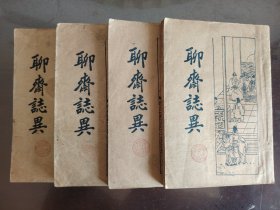 聊齋誌異
聊齋誌異
聊齋誌異
聊齋誌異